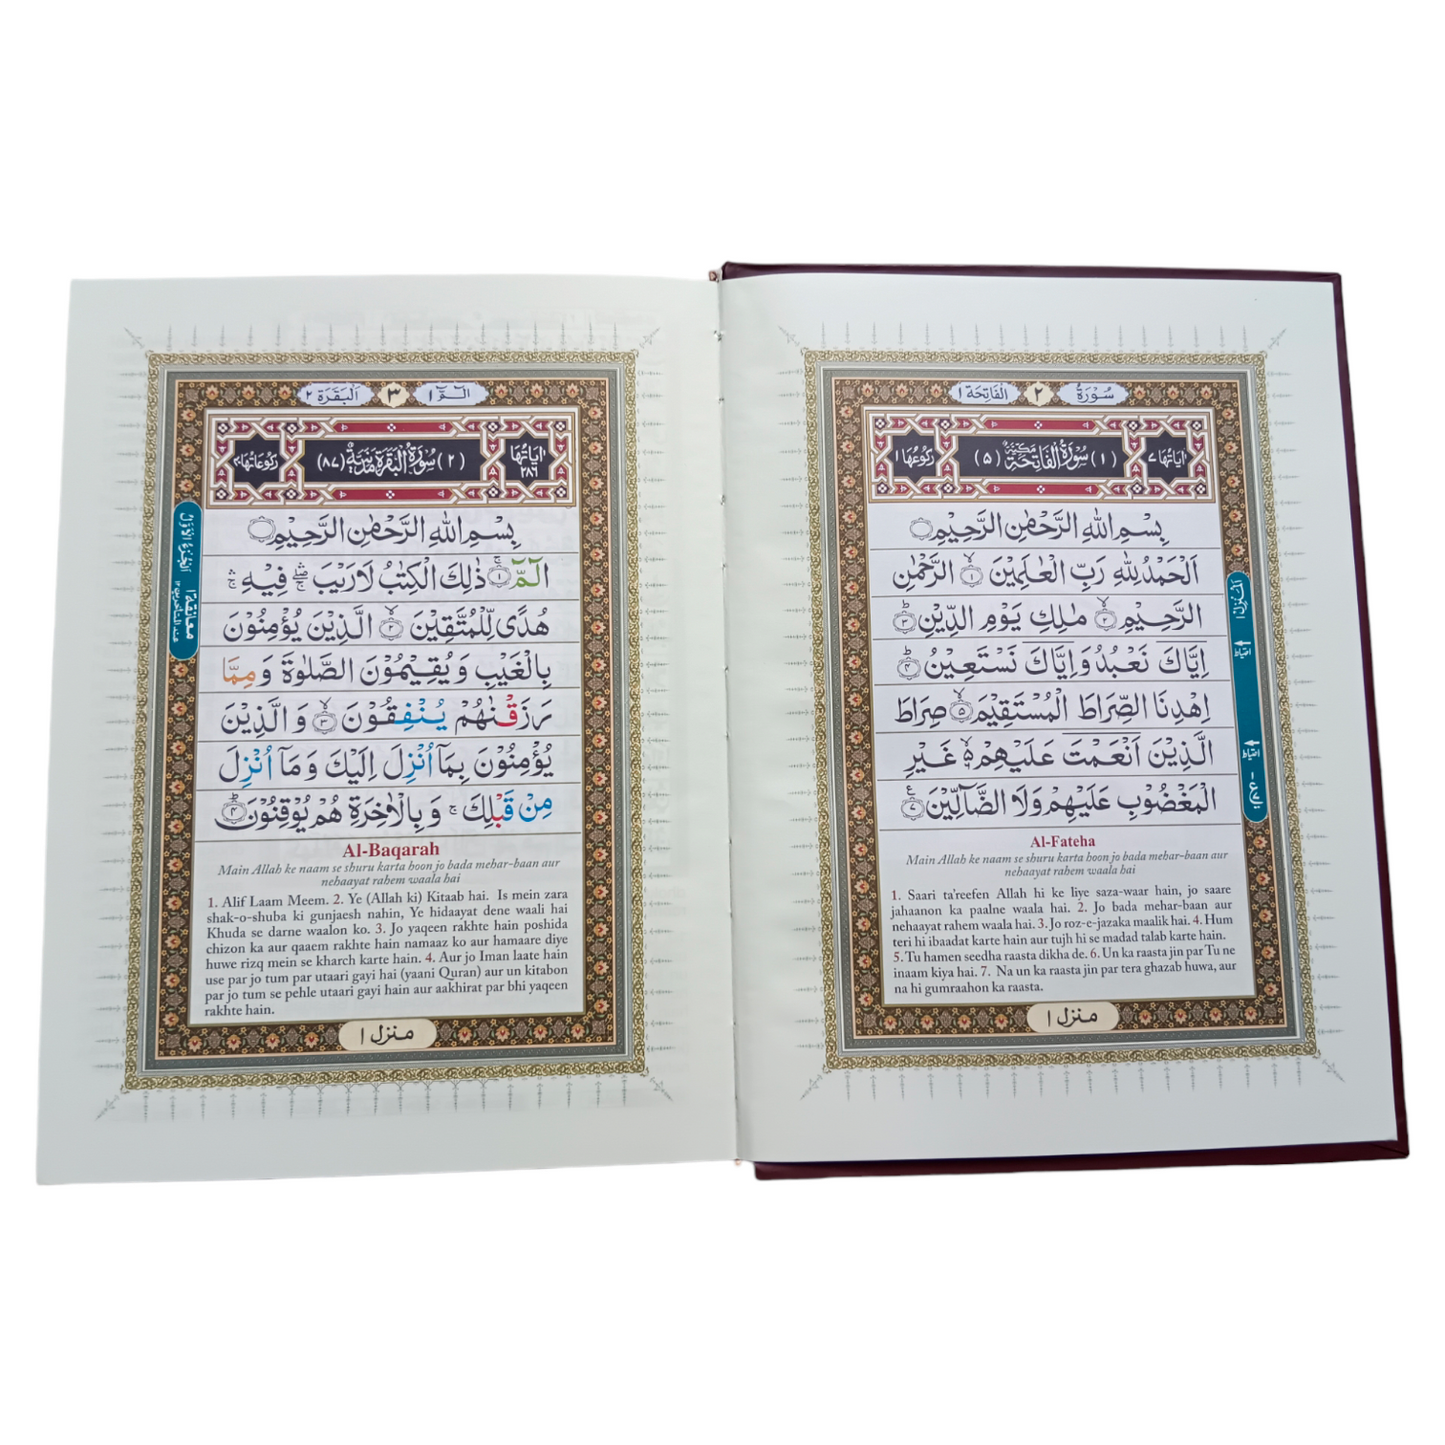 سُوْرَةُ
٢
اَلْفَاتِحَة ١
اٰيَاتُهَا ٧
(١) سُوْرَةُ الْفَاتِحَةِ مَكِّيَّةٌ (٥)
رُكُوْعُهَا ١
بِسْمِ اللّٰهِ الرَّحْمٰنِ الرَّحِيْمِ
اَلْحَمْدُ لِلّٰهِ رَبِّ الْعٰلَمِيْنَ ۙ﴿١﴾ الرَّحْمٰنِ
الرَّحِيْمِ ۙ﴿٢﴾ مٰلِكِ يَوْمِ الدِّيْنِ ؕ﴿٣﴾
اِيَّاكَ نَعْبُدُ وَاِيَّاكَ نَسْتَعِيْنُ ؕ﴿٤﴾
اِهْدِنَا الصِّرَاطَ الْمُسْتَقِيْمَ ۙ﴿٥﴾ صِرَاطَ
الَّذِيْنَ اَنْعَمْتَ عَلَيْهِمْ ۙ٦ غَيْرِ
الْمَغْضُوْبِ عَلَيْهِمْ وَلَا الضَّآلِّيْنَ ﴿٧﴾
اَلْمَنْزِلُ ١
Al-Fateha
Main Allah ke naam se shuru karta hoon jo bada mehar-baan aur
nehaayat rahem waala hai
1. Saari ta'reefen Allah hi ke liye saza-waar hain, jo saare
jahaanon ka paalne waala hai. 2. Jo bada mehar-baan aur
nehaayat rahem waala hai. 3. Jo roz-e-jazaka maalik hai. 4. Hum
teri hi ibaadat karte hain aur tujh hi se madad talab karte hain.
5. Tu hamen seedha raasta dikha de. 6. Un ka raasta jin par Tu ne
inaam kiya hai. 7. Na un ka raasta jin par tera ghazab huwa, aur
na hi gumraahon ka raasta.
منزل ١
الٓـمّٓ ١
٣
اَلْبَقَرَة ٢
اٰيَاتُهَا ٢٨٦
(٢) سُوْرَةُ الْبَقَرَةِ مَدَنِيَّةٌ (٨٧)
رُكُوْعَاتُهَا ٤٠
بِسْمِ اللّٰهِ الرَّحْمٰنِ الرَّحِيْمِ
الٓـمّٓ ۚ﴿١﴾ ذٰلِكَ الْكِتٰبُ لَا رَيْبَ ۛۖ فِيْهِ ۛۚ
هُدًى لِّلْمُتَّقِيْنَ ۙ﴿٢﴾ الَّذِيْنَ يُؤْمِنُوْنَ
بِالْغَيْبِ وَيُقِيْمُوْنَ الصَّلٰوةَ وَمِمَّا
رَزَقْنٰهُمْ يُنْفِقُوْنَ ۙ﴿٣﴾ وَالَّذِيْنَ
يُؤْمِنُوْنَ بِمَاۤ اُنْزِلَ اِلَيْكَ وَمَاۤ اُنْزِلَ
مِنْ قَبْلِكَ ۚ وَبِالْاٰخِرَةِ هُمْ يُوْقِنُوْنَ ؕ﴿٤﴾
اَلْجُزْءُ الْاَوَّلُ
معانقة ١
عند المتأخرين ١٢
Al-Baqarah
Main Allah ke naam se shuru karta hoon jo bada mehar-baan aur
nehaayat rahem waala hai
1. Alif Laam Meem. 2. Ye (Allah ki) Kitaab hai. Is mein zara
shak-o-shuba ki gunjaesh nahin, Ye hidaayat dene waali hai
Khuda se darne waalon ko. 3. Jo yaqeen rakhte hain poshida
chizon ka aur qaaem rakhte hain namaaz ko aur hamaare diye
huwe rizq mein se kharch karte hain. 4. Aur jo Iman laate hain
use par jo tum par utaari gayi hai (yaani Quran) aur un kitabon
par jo tum se pehle utaari gayi hain aur aakhirat par bhi yaqeen
rakhte hain.
منزل ١